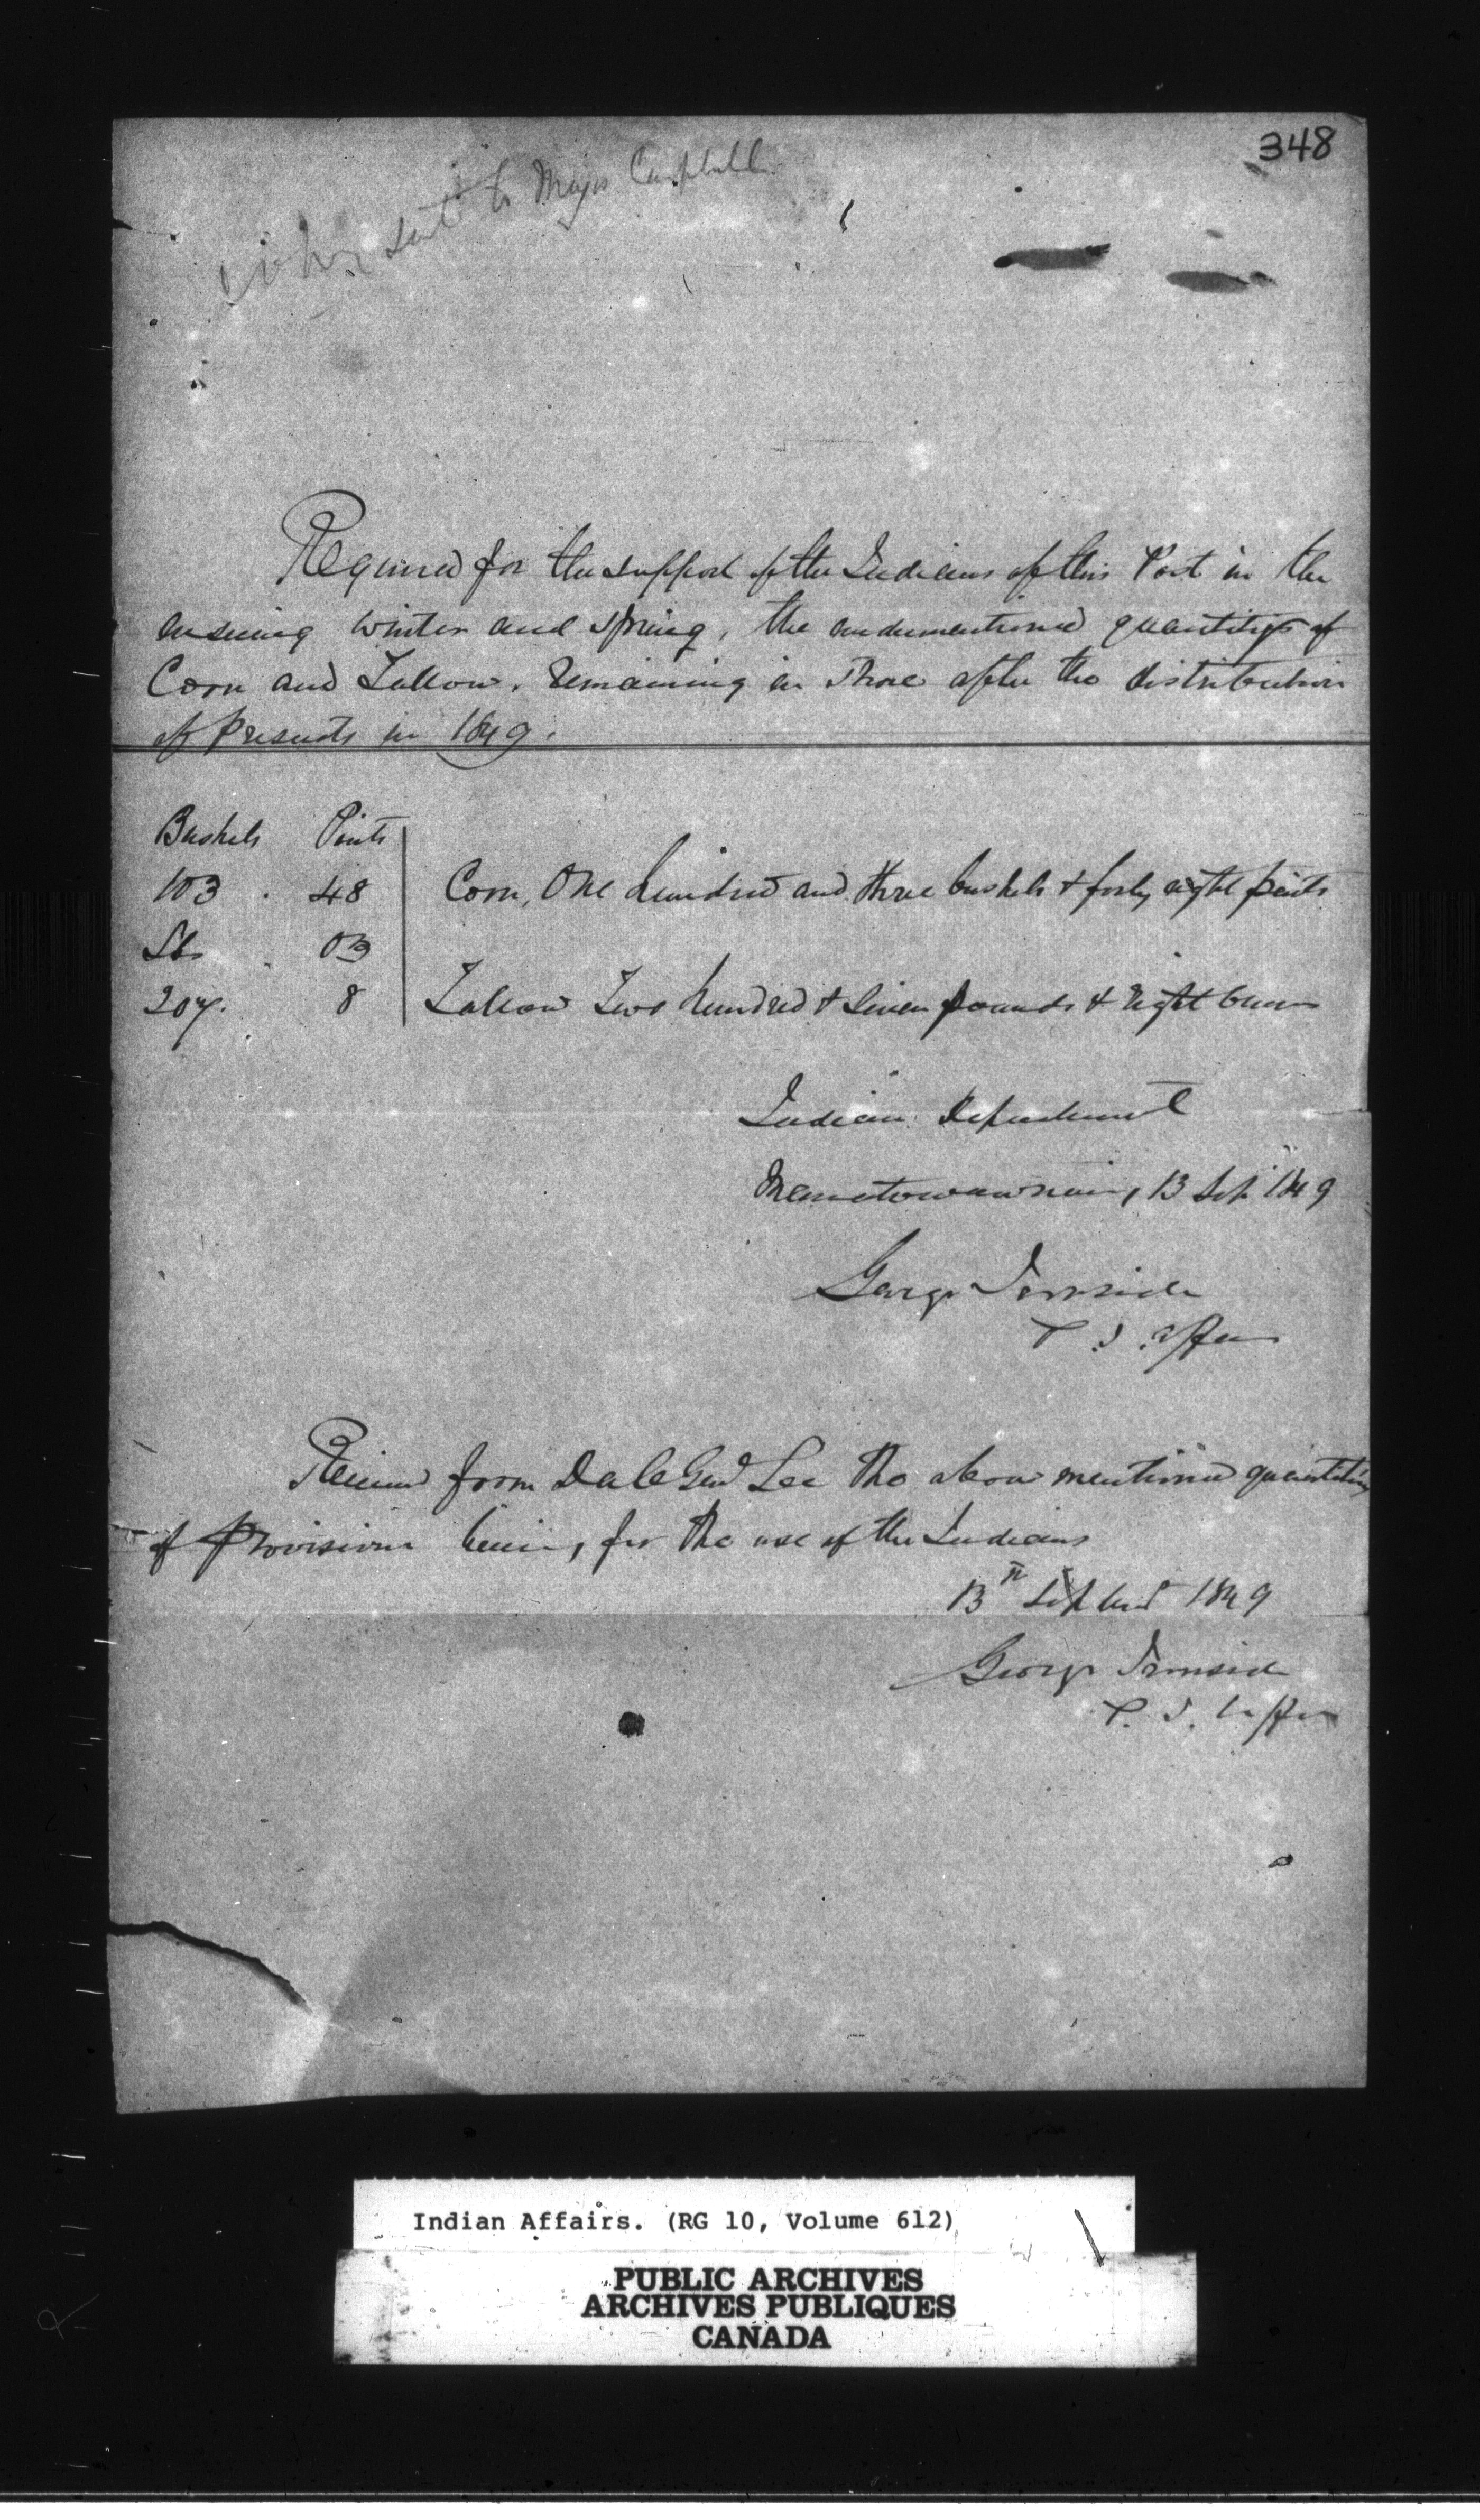 348
sent to Major Campbell
Required for the support of the Indians of this Post in the
ensuing winter and spring, the undermentioned quantities of
Corn and Tallow, remaining in Store after the distribution
of Presents in 1849.
Bushels Pints
103 . 48 Corn, One hundred and three bushels & forty eight pints
Lbs . Oz
207. 8 Tallow Two hundred & seven pounds & eight ounces
Indian Department
Manitowawning, 13 Sept 1849
George Ironside
S. I. Affairs
Received from D A C Genl Lee the above mentioned quantities
of Provisions being, for the use of the Indians
13th September 1849
George Ironside
S. I. Affairs
Indian Affairs. (RG 10, Volume 612)
PUBLIC ARCHIVES
ARCHIVES PUBLIQUES
CANADA